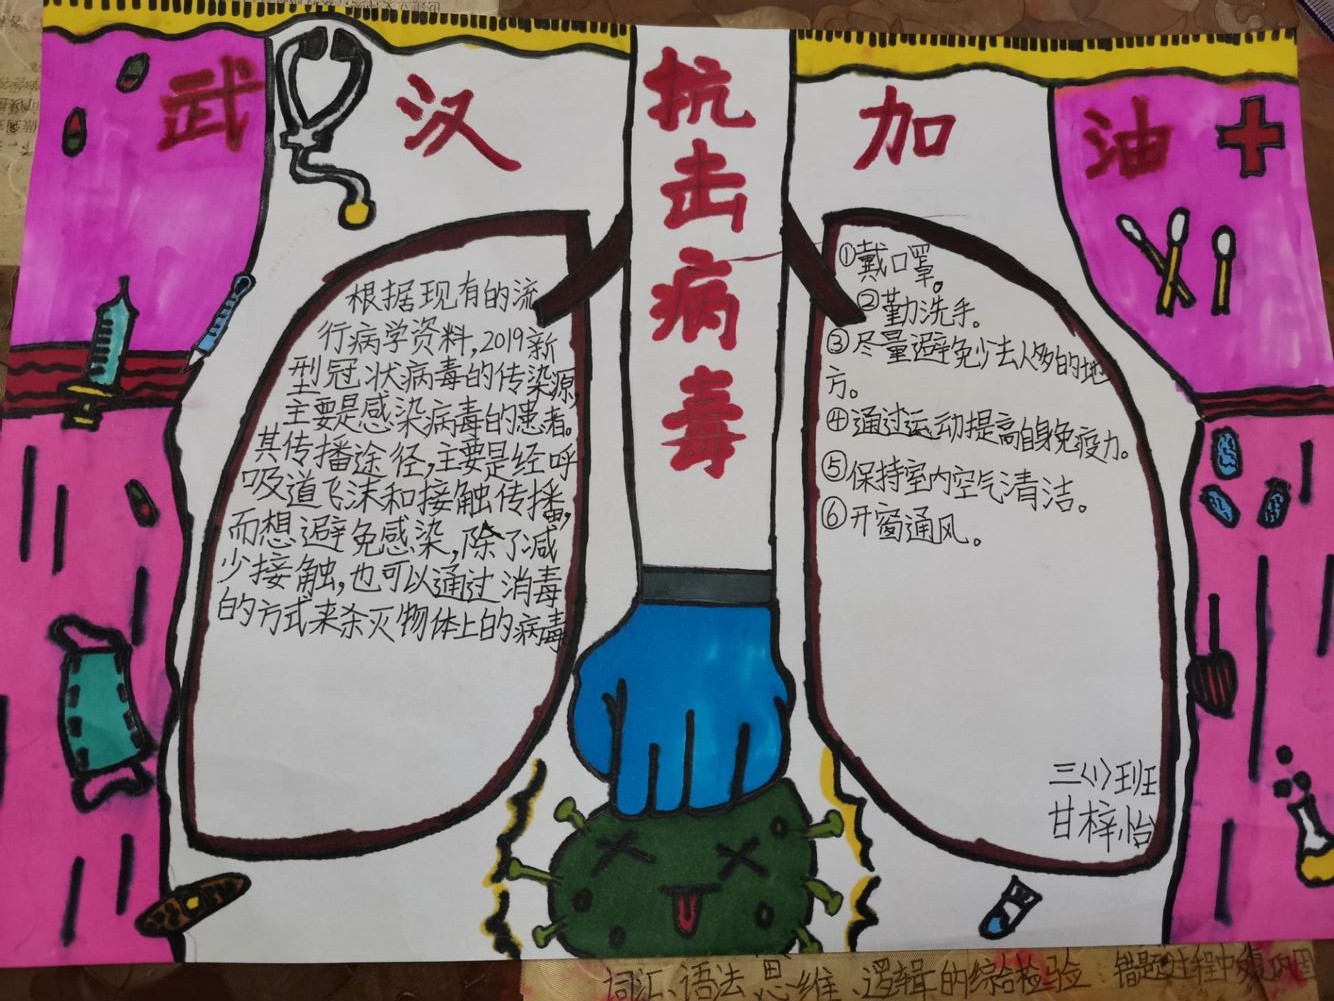 武汉加油
抗击病毒
根据现有的流
行病学资料,2019新
型冠状病毒的传染源,
主要是感染病毒的患者。
其传播途径,主要是经呼
吸道飞沫和接触传播,
而想避免感染,除了减
少接触,也可以通过消毒
的方式来杀灭物体上的病毒
①戴口罩。
②勤洗手。
③尽量避免少去人多的地
方。
④通过运动提高自身免疫力。
⑤保持室内空气清洁。
⑥开窗通风。
三(1)班
甘梓怡
词汇、语法、思维、逻辑的综合检验